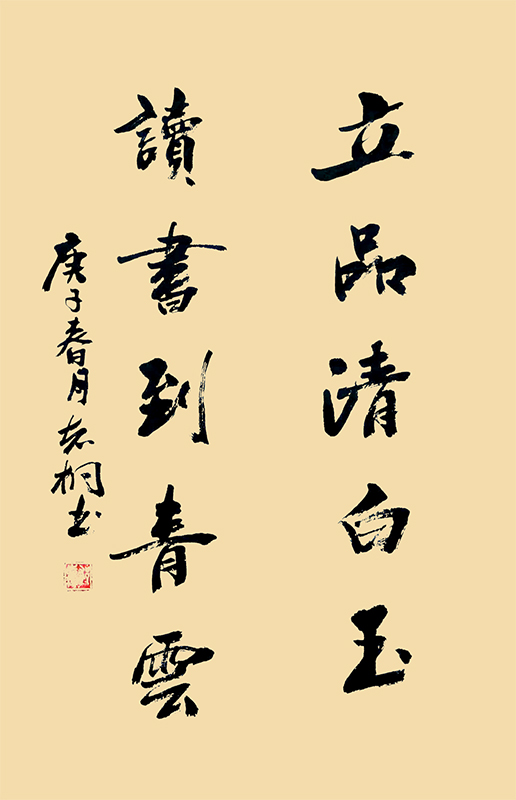 立品清白玉
讀書到青雲
庚子春月 桐书